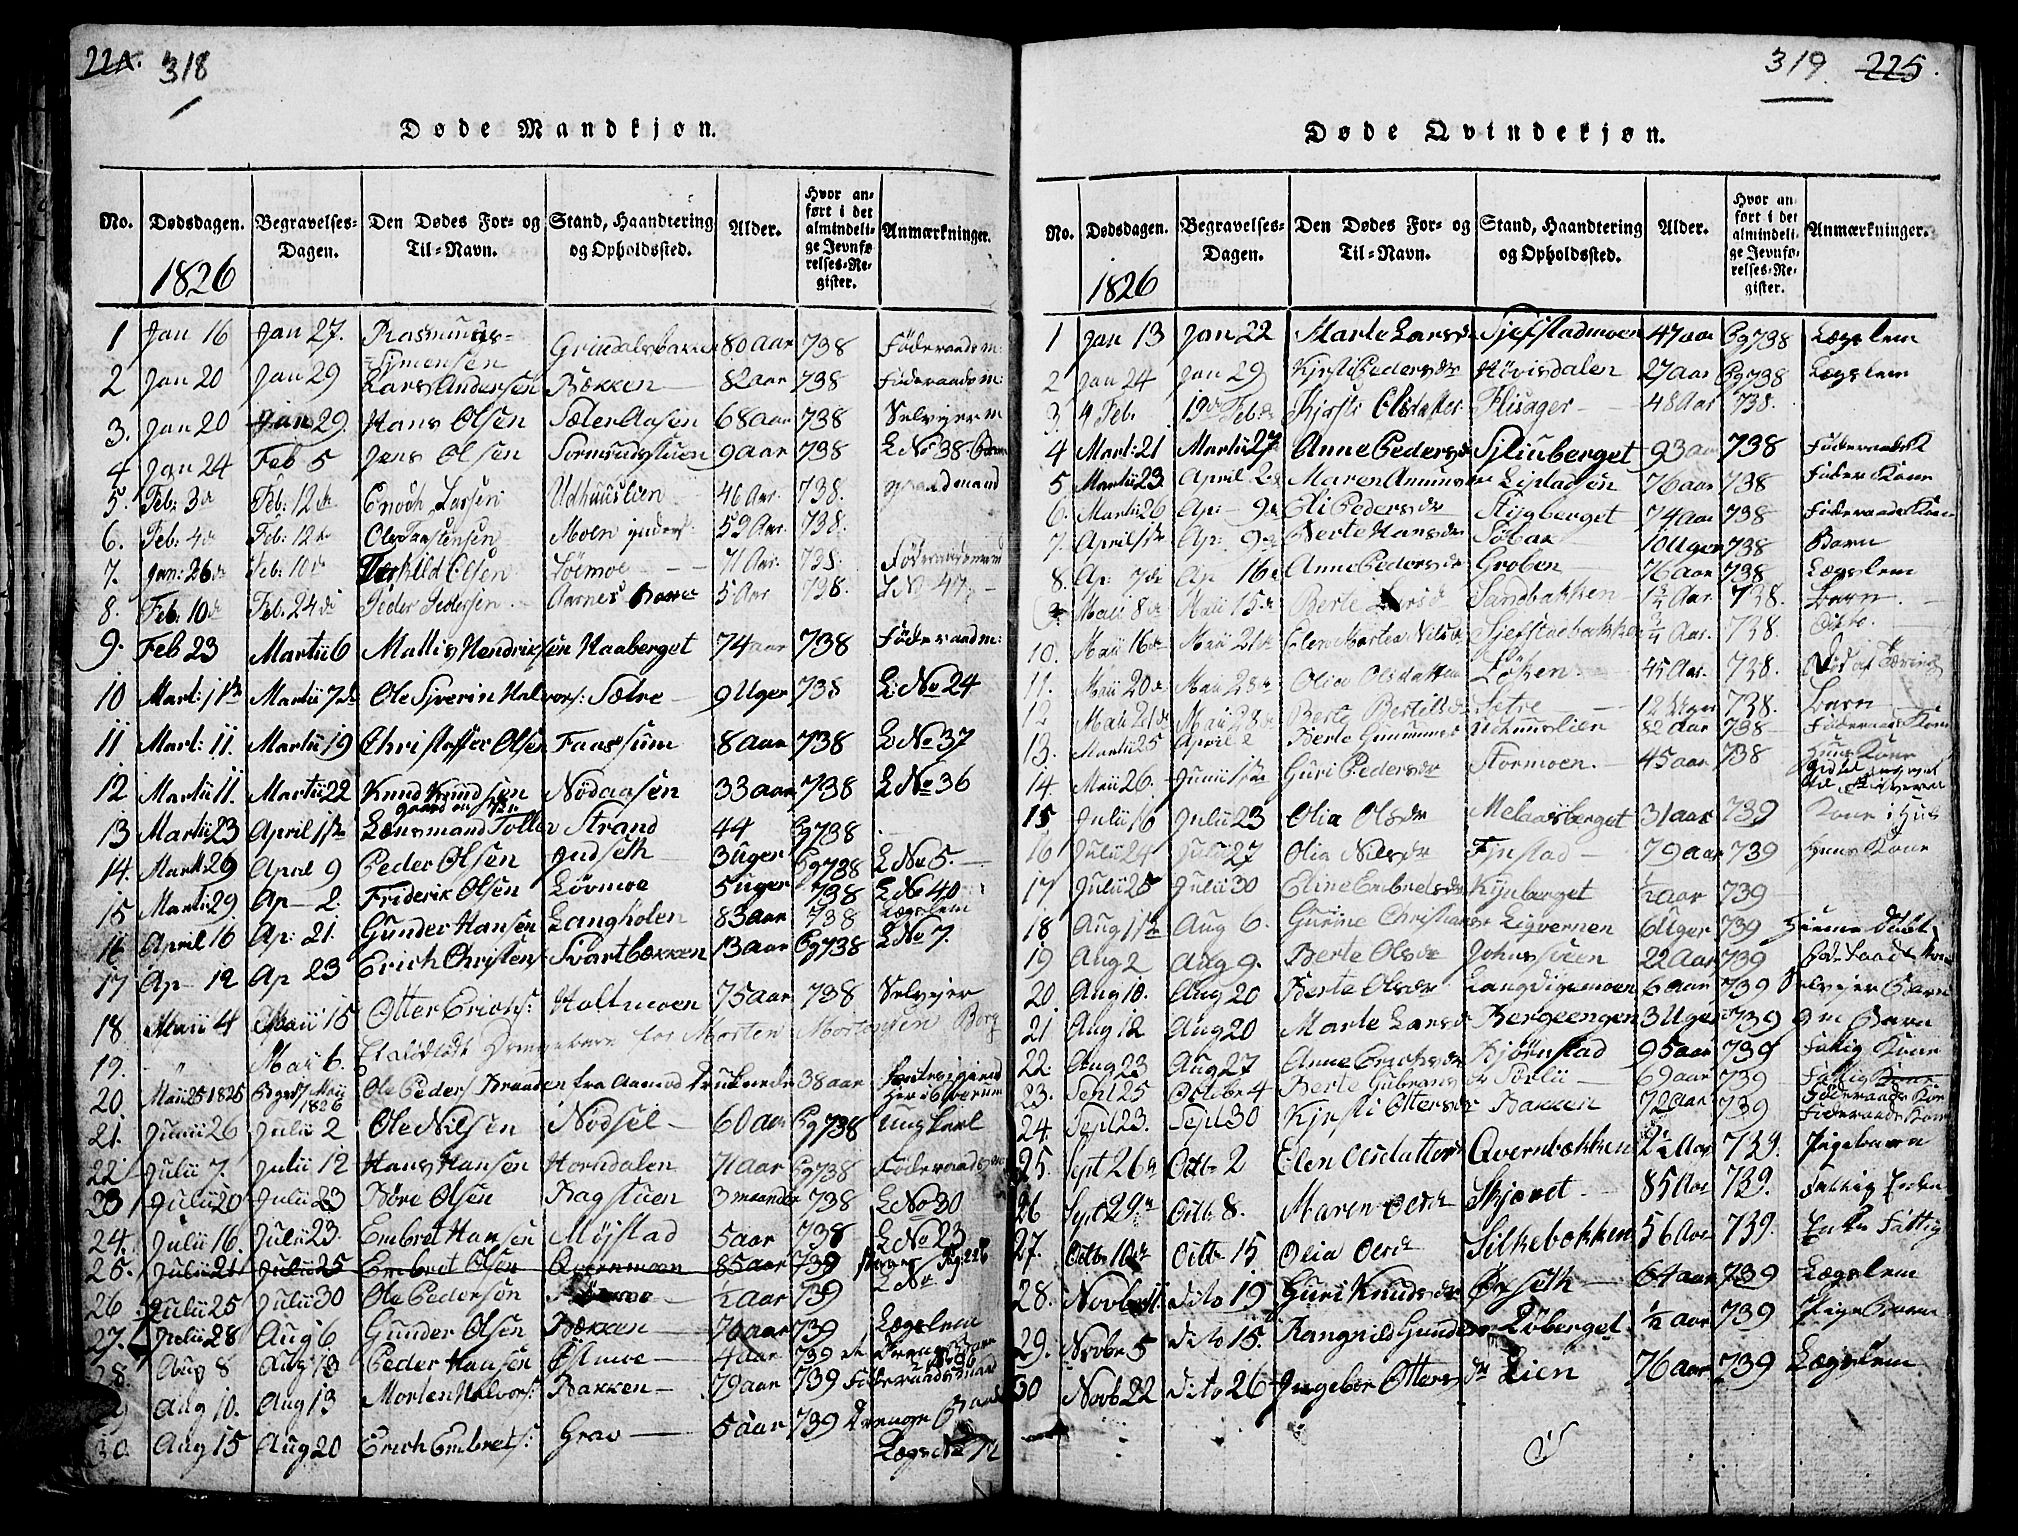 224. 318
Døde Mandkjøn.
No. Dødsdagen. Begravelses-Dagen. Den Dødes For- og Til-Navn. Stand, Haandtering og Opholdssted. Alder. Hvor anført i det almindelige Jevnførelses-Register. Anmærkninger.
1826
1 Jan 16 Jan 27. Rasmus Simensen Grindalsbakken 80 aar 738 Føderaadsm:
2 Jan 20 Jan 29 Lars Andersen Bækken 82 aar 738 Føderaadsm:
3. Jan 20 Jan 29. Hans Olsen Sælen Aasen 68 aar 738 Selvejerm
4 Jan 24 Feb 5 Jens Olsen Sormsundstuen 9 aar 738 L No 38 Barn
5. Feb: 3d Feb: 12d Enoch Larsen Udhuuslien 46 Aar. 738. gaardmand
6. Feb: 4d Feb: 12d Ole Torstensen Moen 59 Aar. 738.
7. Jan: 26d Feb: 10d Terkild Olsen Løemoe 71 Aar. 738. Føderaadsmand
8. Feb: 10d Feb. 24d Peder Pedersen Aarnes Barn 5 Aar 738. L No 47.
9. Feb 23 Martii 6 Mattis Hendriksen Haaberget 74 aar 738 Føderaadm:
10 Mart: 1ste Martii 7de Ole Syverin Halvors: Sætre 9 Uger 738 L: No 24
11 Mart: 11. Martii 19 Christoffer Olsen Faassum 8 aar 738 L No 37
12 Martii 11. Martii 22 Knud Knudsen Nødaasen 33 aar 738 L No 36
13 Martii 23 April 1ste Lænsmand Tollev Strand 44 Pg 738
14. Mart 29 April 9 Peder Olsen Indseth 3 Uger Pg 738 L No 5.
15 Martii 29. Ap 2. Friderik Olsen Løvmoe 5 uger 738 L No 40
16 April 16 Ap: 21. Gunder Hansen Langholen 83 aar 738 Lægslem
17 Ap 12 Ap 23 Erich Christens Svartbækken 13 aar Pg 738 L No 7.
18. Maii 4 Maii 15 Otter Erichs: Holtmoen 75 aar 738 Selvejer
19. " Mai 6. Et dødfødt Drengebarn for Morten Mortensen Berg
20. Maii 25 1825 Begrs Maii 1826 Ole Peders Braaden fra Aamod druknede 38 aar
21. Junii 26 Julii 2 Ole Nilsen Nødsel 60 aar Pg 738 Ungkarl
22 Julii 7. Julii 12 Hans Hansen Horndalen 71 aar Pg 738 Føderaadsm
23 Julii 20 Julii 23 Børe Olsen Bagstuen 3 maander 738 L No 30
24. Julii 16. Julii 23. Embret Hansen Møjstad 5 aar 738 L No 23
25. Julii 21 Julii 25 Embret Olsen Qvernmoen 85 aar 739
26 Julii 25 Julii 30 Ole Pedersen ½ aar 739 L No
27. Julii 28 Aug 6 Gunder Olsen Bækken 76 aar 739 Lægslem
28 Aug 8 Aug 13 Peder Hansen Østmoe 4 aar 739
Aug 10. Aug 13 Morten Halvors: Bakken 79 aar 739 Føderaadsmand
30. Aug 15 Aug 20 Erich Embrets: Grav 5 aar 739 Drenge Barn Lægs No 12
319 225.
Døde Qvindekjøn.
No. Dødsdagen. Begravelses-Dagen. Den Dødes For- og Til-Navn. Stand, Haandtering og Opholdssted. Alder. Hvor anført i det almindelige Jevnførelses-Register. Anmærkninger.
1826
1 Jan 13 Jan 22 Marte Larsdr Sjefstadmoen 47 aar Pg 738 Lægslem
2 Jan 24 Jan 29 Kjersti Pedersdr Høvisdalen 27 aar Pg 738 Lægslem
3. 4 Feb. 19d Feb. Kjersti Olsdatter Flisager 48 Aar 738.
4 Marti 21 Martii 27 Anne Pedersdr Sjliuberget 93 aar 738 Føderaadsk
5 Martii 23 April 2d Maren Amundsdr 76 aar 738 Føder Kone
6. Martii 26 Ap 9d Eli Pedersdr Flisberget 74 aar 738 Føderaads Kone
7. April 1ste Ap: 9d Berte Hansdr Søbak 10 Uger 738 Barn
8. Ap 7di Ap 16d Anne Pedersdr Groben 76 aar 738 Lægslem
9 Maii 8d Maii 15d Berte Larsd Sandbakken 1½ Aar. 738. Barn
10. Maii 16d Maii 21d Elen Marten Nilsd Sjefstadbakken Aar. 738. Ditto.
11. Maii 20d Maii 28d Olia Olsdatter Løken 45 Aar. 738.
12 Maii 21d Maii 28d Berte Bertilsd Setre 12 Uger 738. Barn
13. Martii 25 April 2 Berte Gunnersd Udhuuslien 82 aar 738 Føderaads Kone
14. Maii 26. Junii 1ste Guri Pedersdr Stormoen 45 aar 738 Huus Kone
15 Julii 16 Julii 23 Olia Olsdr Melaasberget 31 aar 739 Kone i Huus
16 Julii 24 Julii 27 Olia Nilsdr Fjnstad 79 aar 739 Huus Kone
17 Julii 25 Julii 30 Eline Embretsdr Kynberget ½ aar 739
18 Aug 1ste Aug 6. Gurine Christiansdr Ligvernen 6 Uger 739 Hiemmedøbt
19 Aug 2 Aug 9. Berte Olsdr Johnssveen 22 aar 739
20. Aug 10. Aug 20 Berte Olsdr Langdigemoen 6 aar 739 Selvejer Barn
21 Aug 12 Aug 20 Marte Larsd Bergeengen 3 Uger 739 gm Barn
22. Aug 23 Aug 27 Anne Erichsdr Kjørnstad 95 aar 739 Fattig Kone
23. Sept 25 Octobr 4 Berte Gulbransdr Sørlii 69 aar 739 Fattig Kone
24. Sept 23. Sept 30 Kjersti Ottersdr Bakken 72 aar 739 Føderaads Kone
25. Sept 26d Octb 2 Elen Olsdatter Qvernbækken 2½ Aar 739. Pigebarn
26 Sept 29d Octb 8. Maren Olsdr Skjæret 85 Aar 739. Fattig Enke
27. Octb 10d Octb 15. Olia Olsdr Silkebækken 56 Aar 739. Enke Fattig
28. Novbr 11. dito 19 Guri Knudsdr Ørseth 64 aar 739 Lægslem
29. Novbr 5 dito 15. Rangnild Gundersdr Løberget ½ aar 739 Pige Barn
30 Novb 22 dito 26 Ingebor Ottersdr Lien 76 aar 739 Lægslem